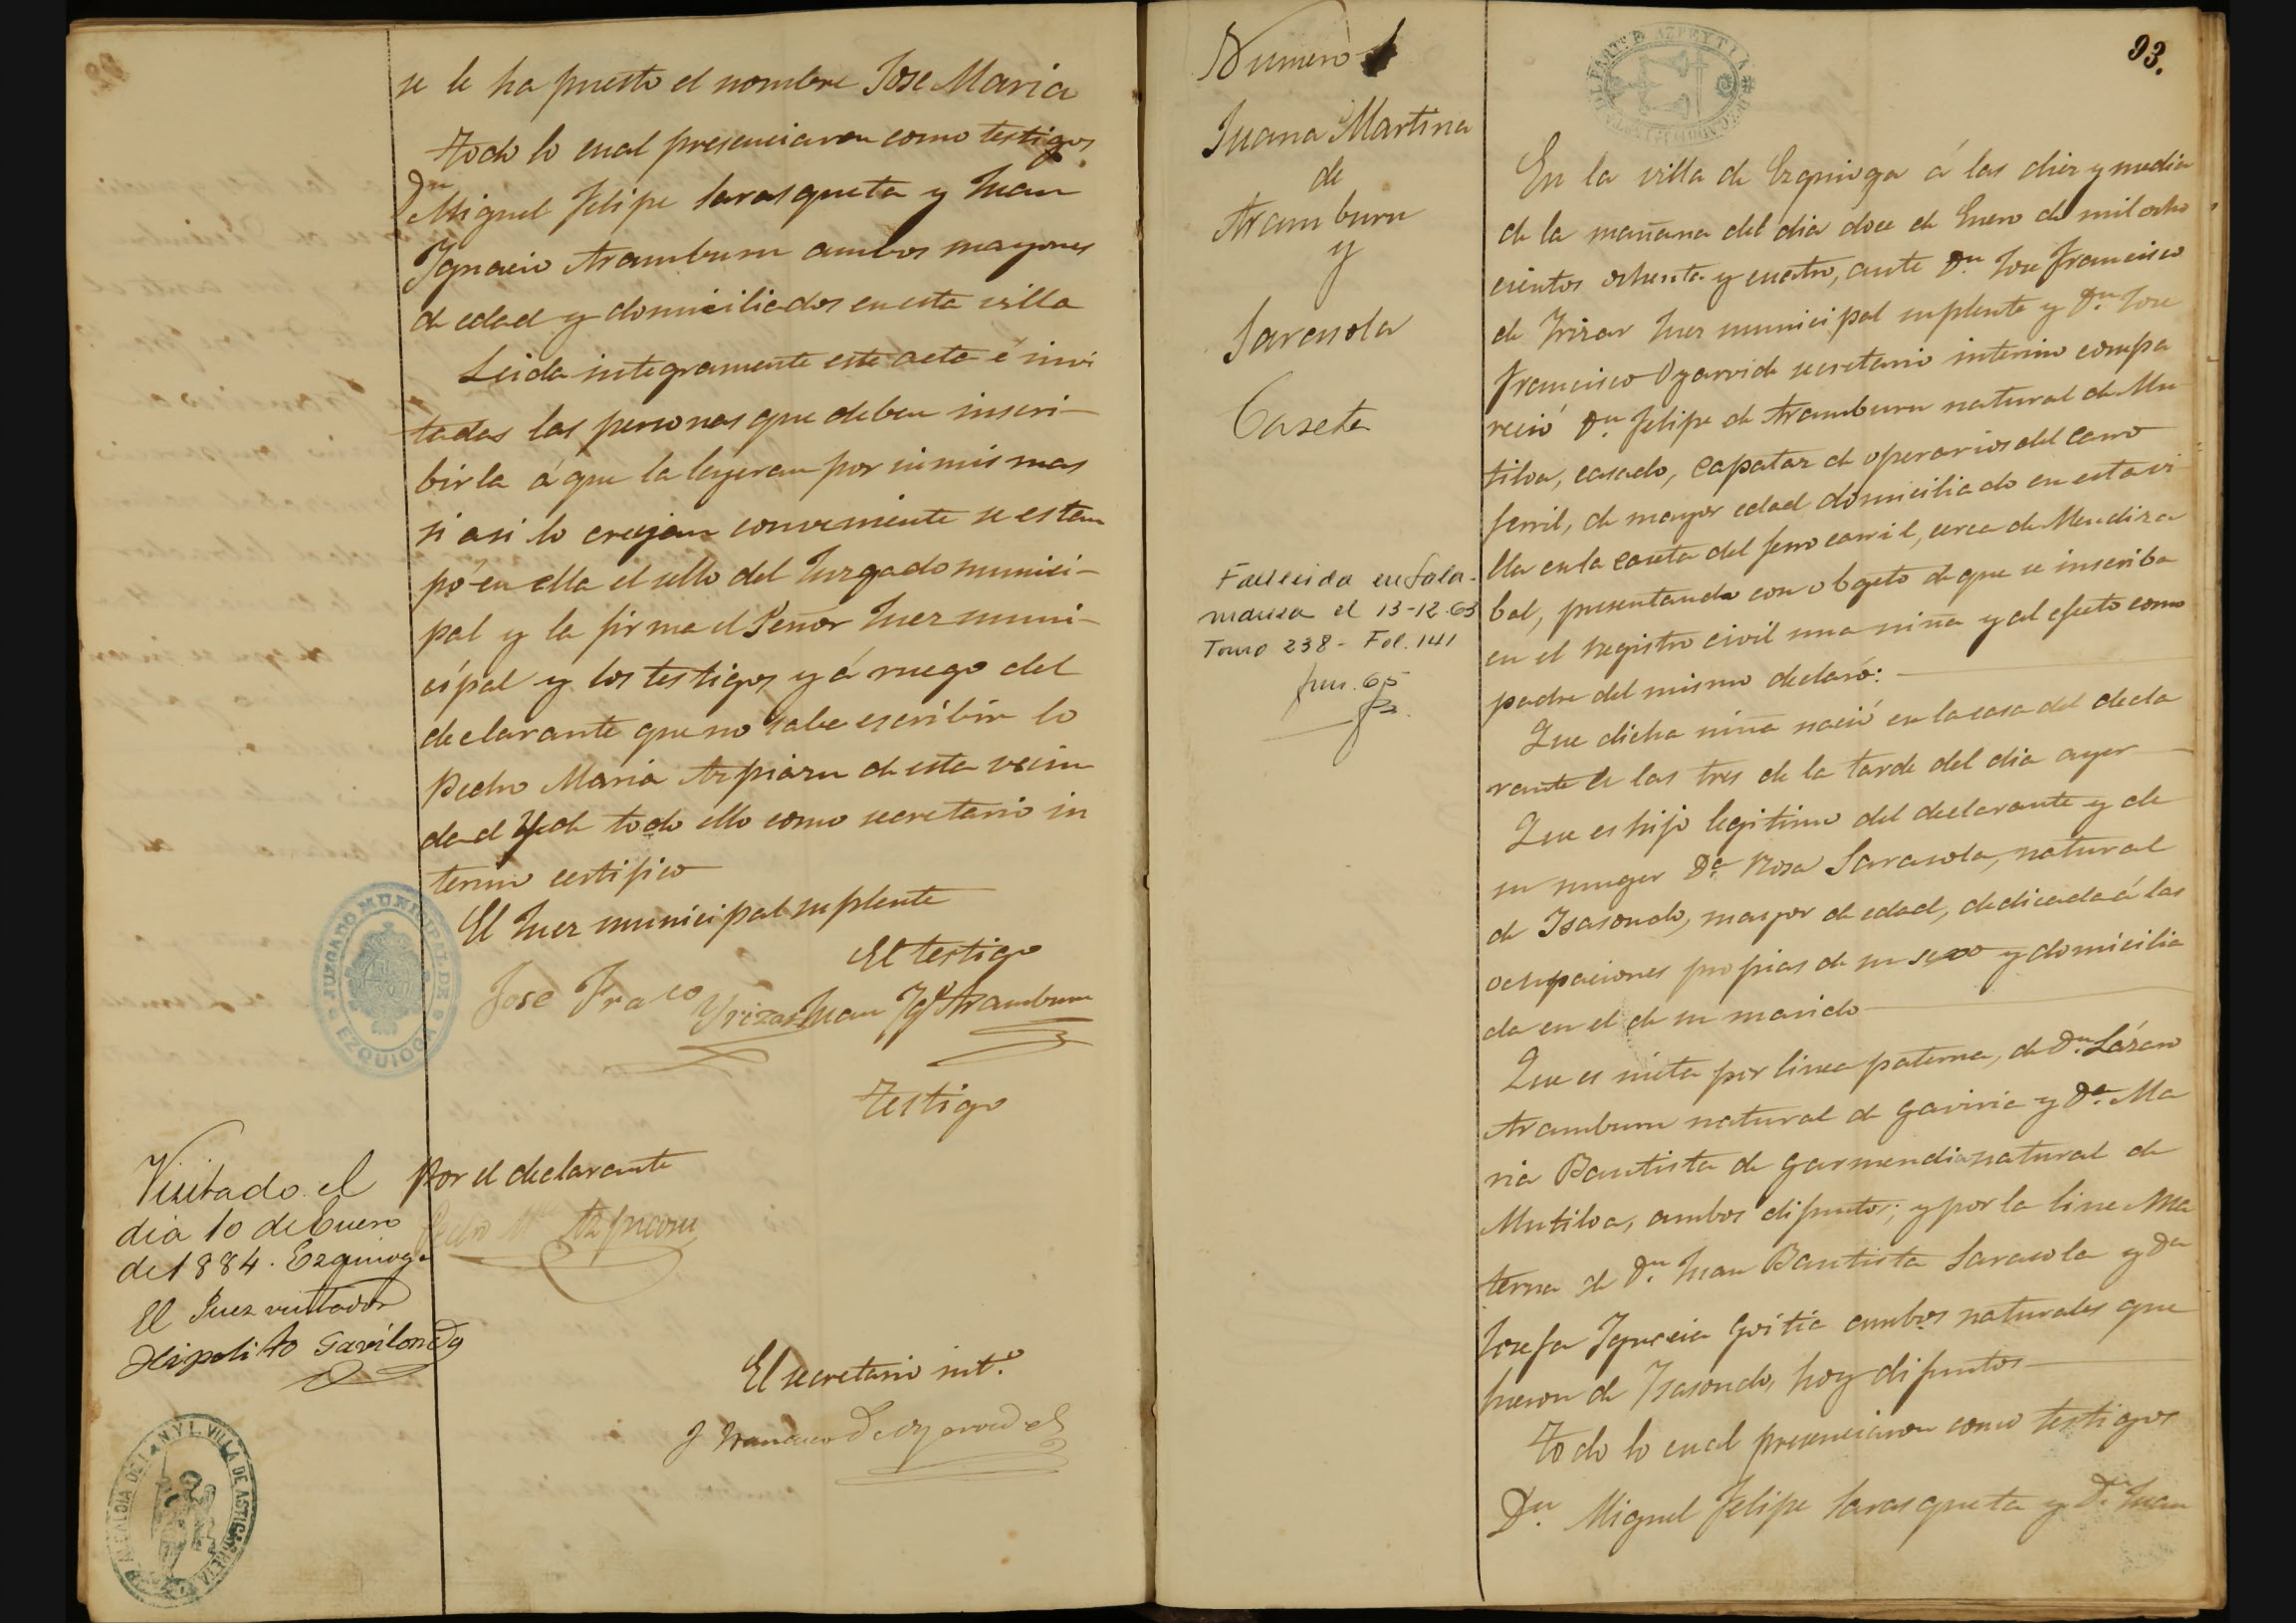 se le ha puesto el nombre Jose Maria
Todo lo cual presenciaron como testigos
Dn Miguel Felipe Sarasqueta y Juan
Ygnacio Aramburu ambos mayores
de edad y domiciliados en esta villa
Leida integramente este acta é invi
tadas las personas que deben inscri-
birla á que la leyeran por si mismas
si asi lo creyan conveniente se estam
pó en ella el sello del Juzgado munici-
pal y la firma el Señor Juez muni-
cipal y los testigos y á ruego del
declarante que no sabe escribir lo
Pedro Maria Azpiazu de esta vecin
dad y de todo ello como secretario in
terino certifico
El Juez municipal suplente
El testigo
Jose Fraco Yrizar Juan Ygo Aramburu
Testigo
Por el declarante
Pedro Ma Azpiazu
El secretario int.o
J Francisco De Oyarvide
JUZGADO MUNICIPAL DE EZQUIOGA
Visitado el
dia 10 de Enero
de 1884. Ezquioga
El Juez visitador
Hipolito Gavilondo
ALCALDIA DE LA N. Y L. VILLA DE ASTIGARRETA
93.
Numero 1
Juana Martina
de
Aramburu
y
Sarasola
Caseta
Fallecida en Sala-
manca el 13-12-63
Tomo 238 - Fol. 141
En la villa de Ezquioga á las diez y media
de la mañana del dia doce de Enero de mil ocho
cientos ochenta y cuatro, ante Dn Jose Francisco
de Yrizar Juez municipal suplente y Dn Jose
Francisco Oyarvide secretario interino compa
reció Dn Felipe de Aramburu natural de Mu
tiloa, casado, capataz de operarios del carro
ferril, de mayor edad domiciliado en esta vi-
lla en la caseta del ferro carril, cerca de Mendiza
bal, presentando con obgeto de que se inscriba
en el registro civil una niña y al efecto como
padre del mismo declaró:
Que dicha niña nació en la casa del decla
rante á las tres de la tarde del dia ayer
Que es hijo legitimo del declarante y de
su muger Da Rosa Sarasola, natural
de Isasondo, mayor de edad, dedicada á las
ocupaciones propias de su sexo y domicilia
da en el de su marido
Que es nieta por linea paterna, de Dn Lázaro
Aramburu natural de Gaviria y Da Ma
ria Bautista de Garmendia natural de
Mutiloa, ambos difuntos; y por la line Ma
terna de Dn Juan Bautista Sarasola y Da
Josefa Ygnacia Goitia ambos naturales que
fueron de Isasondo, hoy difuntos
Todo lo cual presenciaron como testigos
Dn Miguel Felipe Sarasqueta y Dn Juan